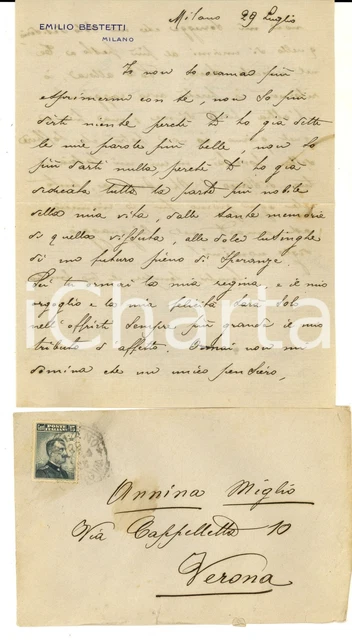 EMILIO BESTETTI
MILANO
Milano 29 Luglio
Io non so oramai più
esprimermi con te, non so più
dirti niente perché ti ho già dette
le mie parole più belle, non so
più darti nulla perché ti ho già
dedicata tutta la parte più nobile
della mia vita, dalle sante memorie
di quella vissuta, alle dolci lusinghe
di un futuro pieno di speranze.
Tu ormai la mia regina, e il mio
orgoglio e la mia felicità sarà sol
nell'offrirti sempre più grande il mio
tributo d'affetto. Ormai non mi
domina che un unico pensiero,
iCharta
POSTE ITALIANE
Annina Miglio
Via Cappelletta 10
Verona